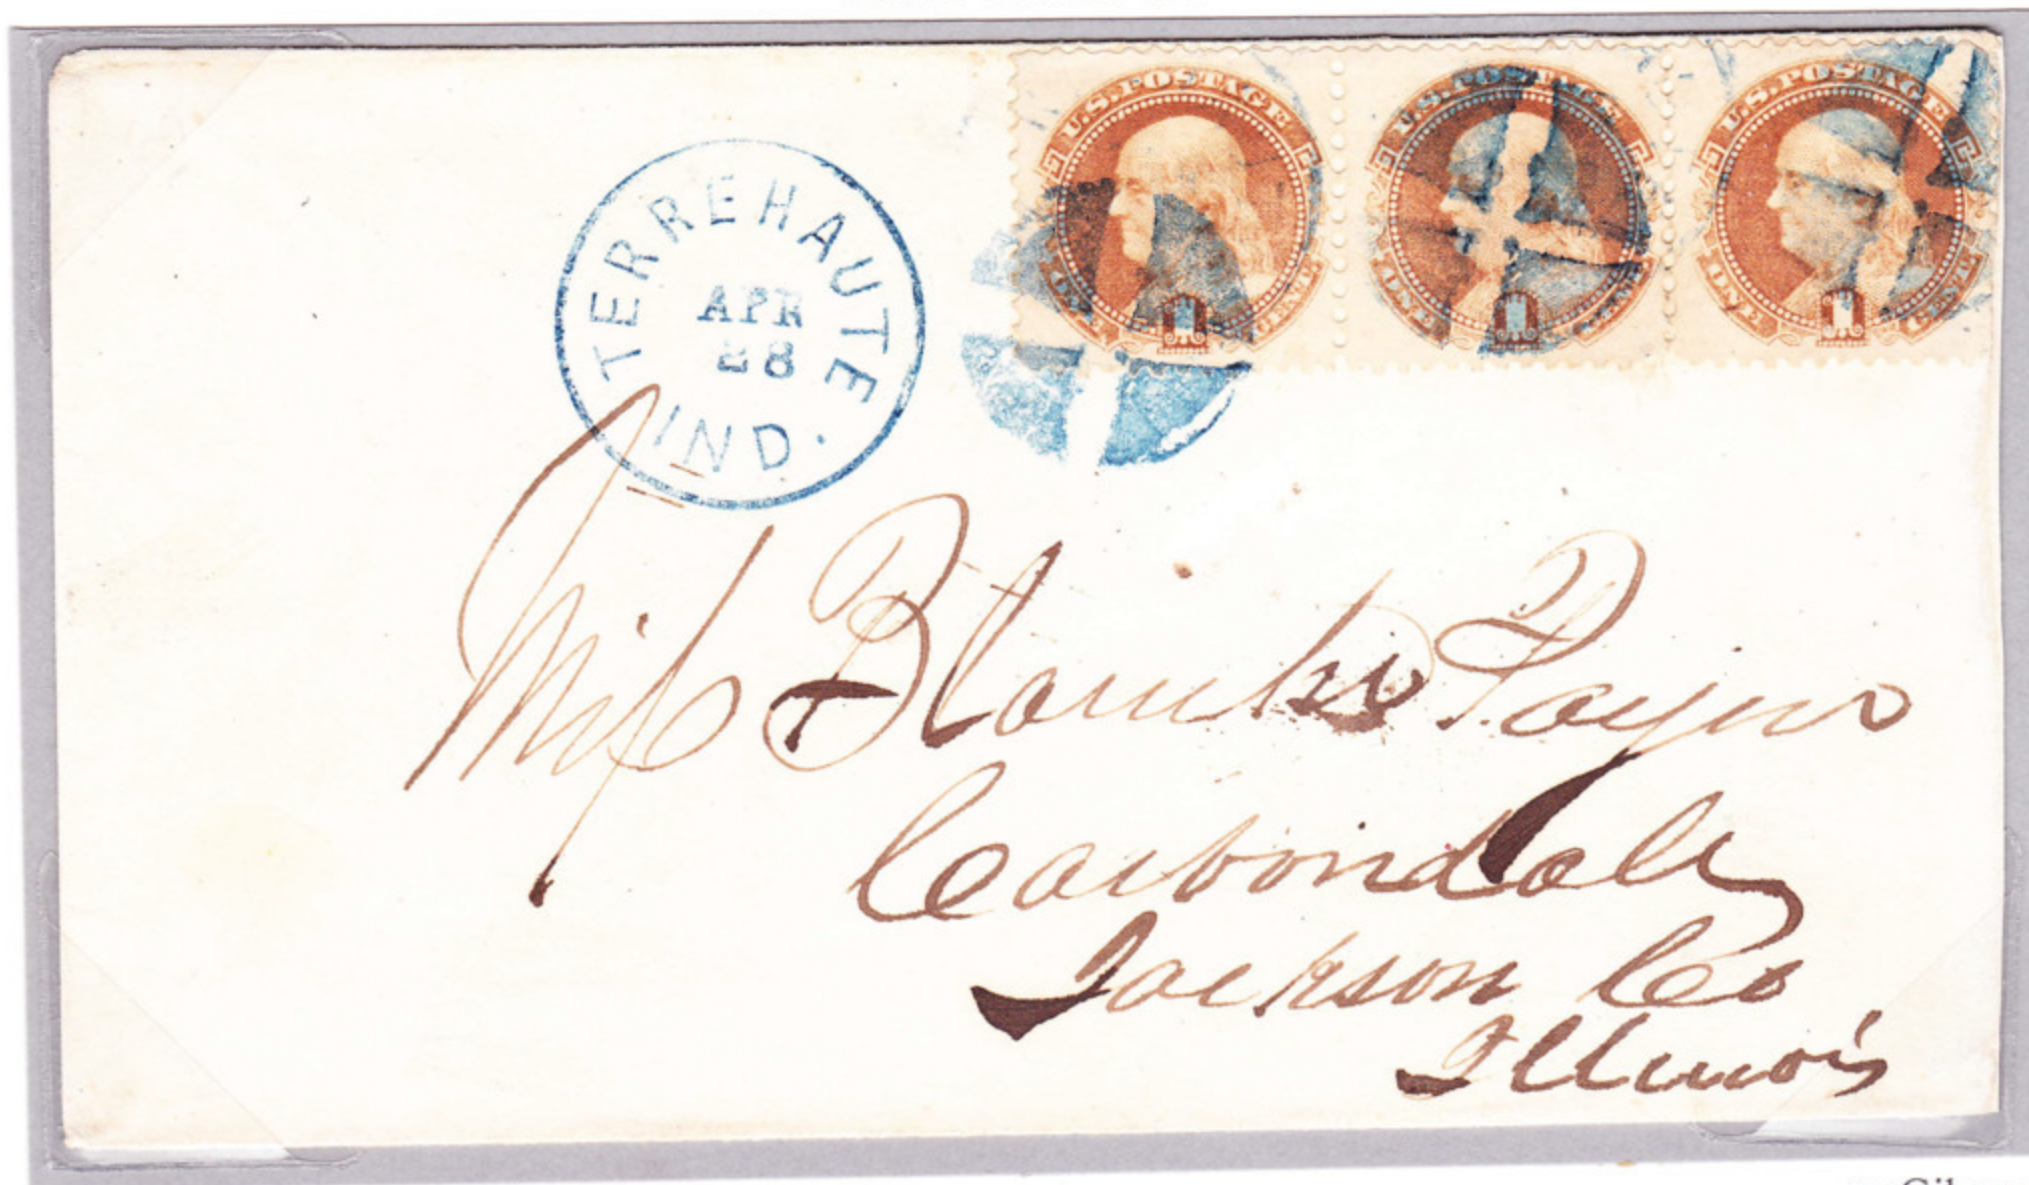 U.S. POSTAGE U.S. POSTAGE U.S. POSTAGE
ONE 1 CENT ONE 1 ONE 1 CENT
TERRE HAUTE
APR
28
IND.
Miss Blanche Payne
Carbondale
Jackson Co
Illinois